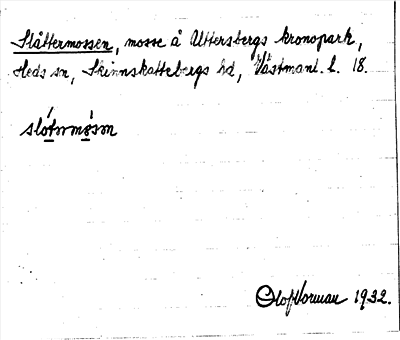 Slåttermossen, mosse å Uttersbergs kronopark,
Heds sn, Skinnskattebergs hd, Västmanl. l. 18.
Olof Vorman 1932.